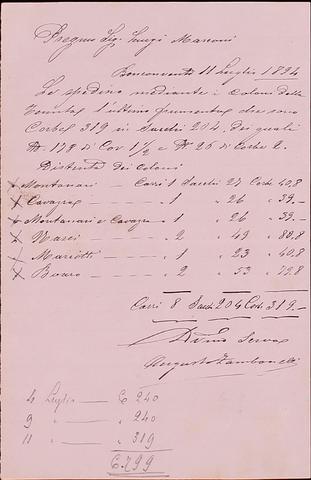 Pregmo Sig. Luigi Marconi
Bonconvento 11 Luglio 1894
Le spedisco mediante i coloni della
Tenuta l'intero frumentag che sono
Corbe 319 in Sacchi 204, dei quali
N 178 di Cor 1½ e N 26 di Corbe 2.
Distinta dei Coloni
Montanari — Carri 1 Sacchi 27 Corbe 40,8
Cavazza — " 1 " 26 " 39.—
Montanari e Cavazza — " 1 " 26 " 39.—
Masci — " 2 " 49 " 80,8
Mariotti — " 1 " 23 " 40.8
Boaro — " 2 " 53 " 79.8
Carri 8 Sacchi 204 Corb. 319.—
Servo
Augusto Zamboni
4 Luglio — C 240
9 " — " 240
11 " — " 319
C. 799